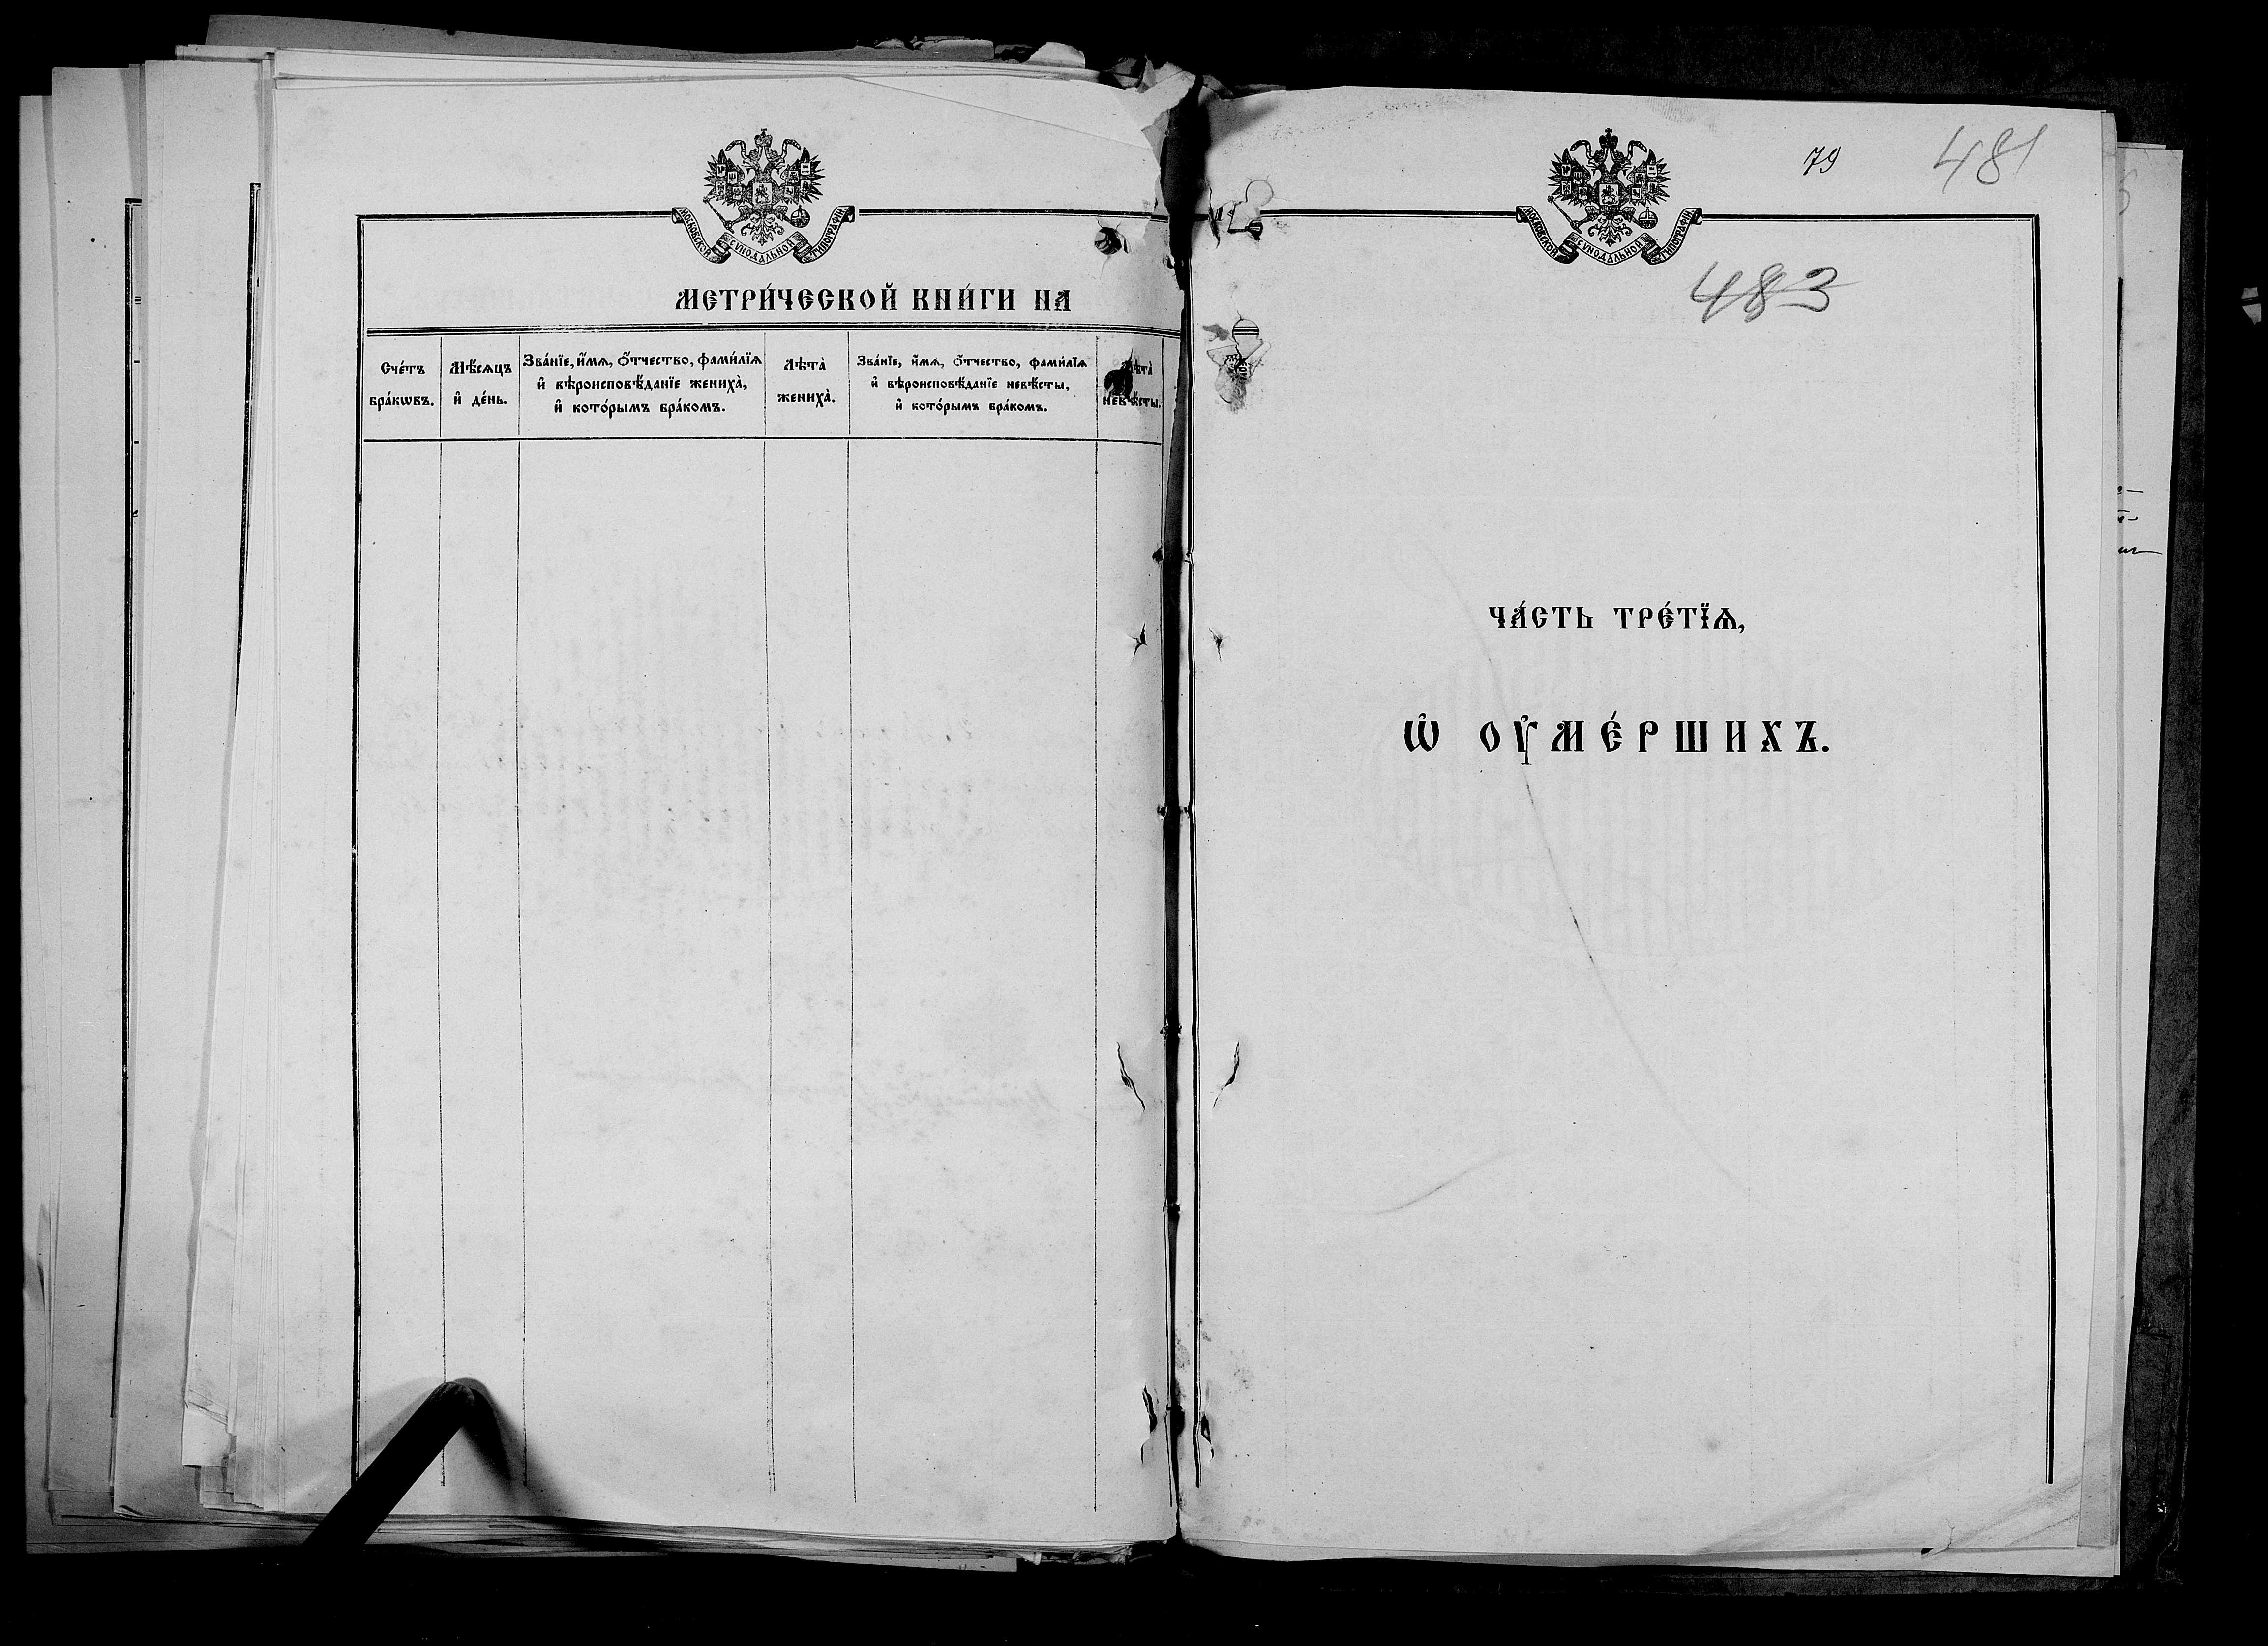 МОСКОВСКОЙ СѴНОДАЛЬНОЙ ТИПОГРАФІИ
МЕТРИ́ЧЕСКОЙ КНИ́ГИ НА
Сче́тъ
бра́кѡвъ.
Мѣ́сѧцъ
и҆ де́нь.
Зва́нїе, и҆́мѧ, ѻ҆́тчество, фами́лїѧ
и҆ вѣроисповѣ́данїе жениха̀,
и҆ кото́рымъ бра́комъ.
Лѣта̀
жениха̀.
Зва́нїе, и҆́мѧ, ѻ҆́тчество, фами́лїѧ
и҆ вѣроисповѣ́данїе невѣ́сты,
и҆ кото́рымъ бра́комъ.
Лѣта̀
невѣ́сты.
79
481
МОСКОВСКОЙ СѴНОДАЛЬНОЙ ТИПОГРАФІИ
483
ЧА́СТЬ ТРЕ́ТЇѦ,
Ѡ҆ ОУ҆МЕ́РШИХЪ.